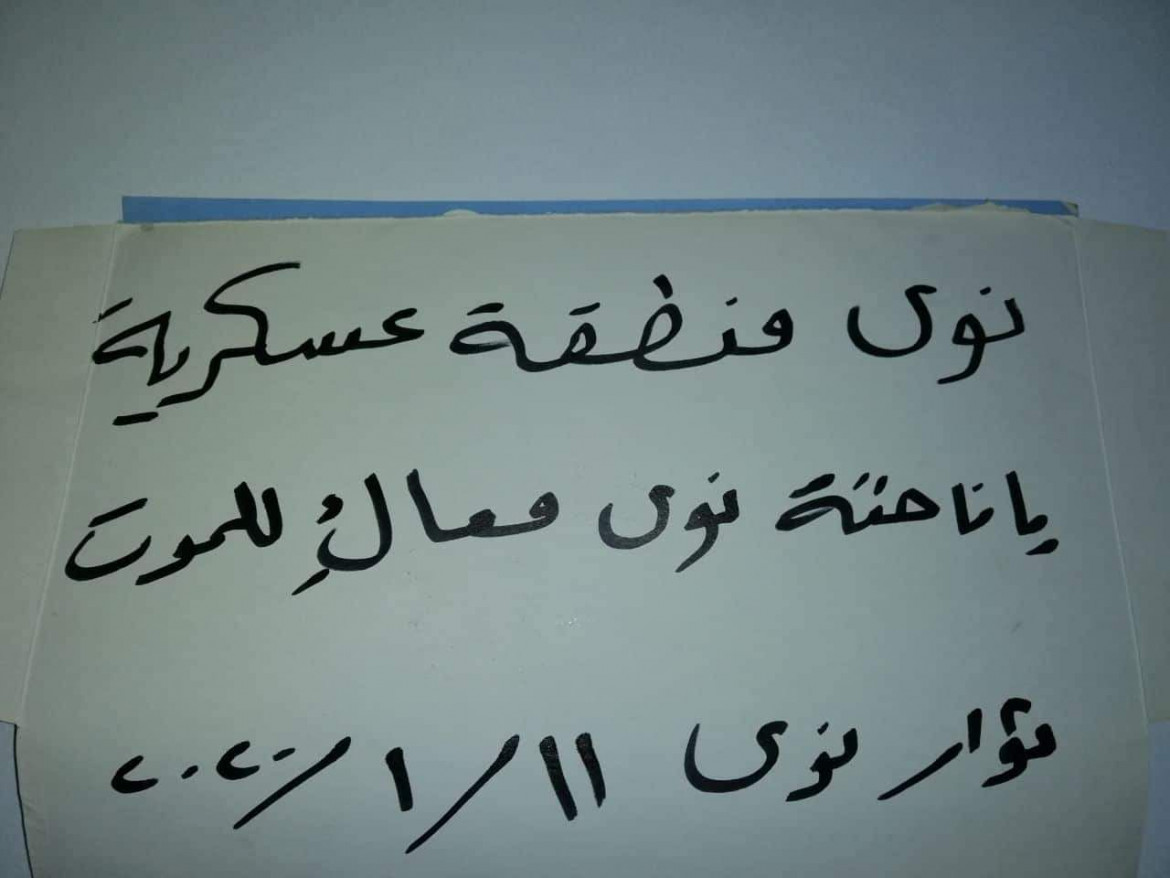 نوى منطقة عسكرية
يا ناحتة نوى معاكِ للموت
ثوار نوى ١١/١/٢٠٢٠